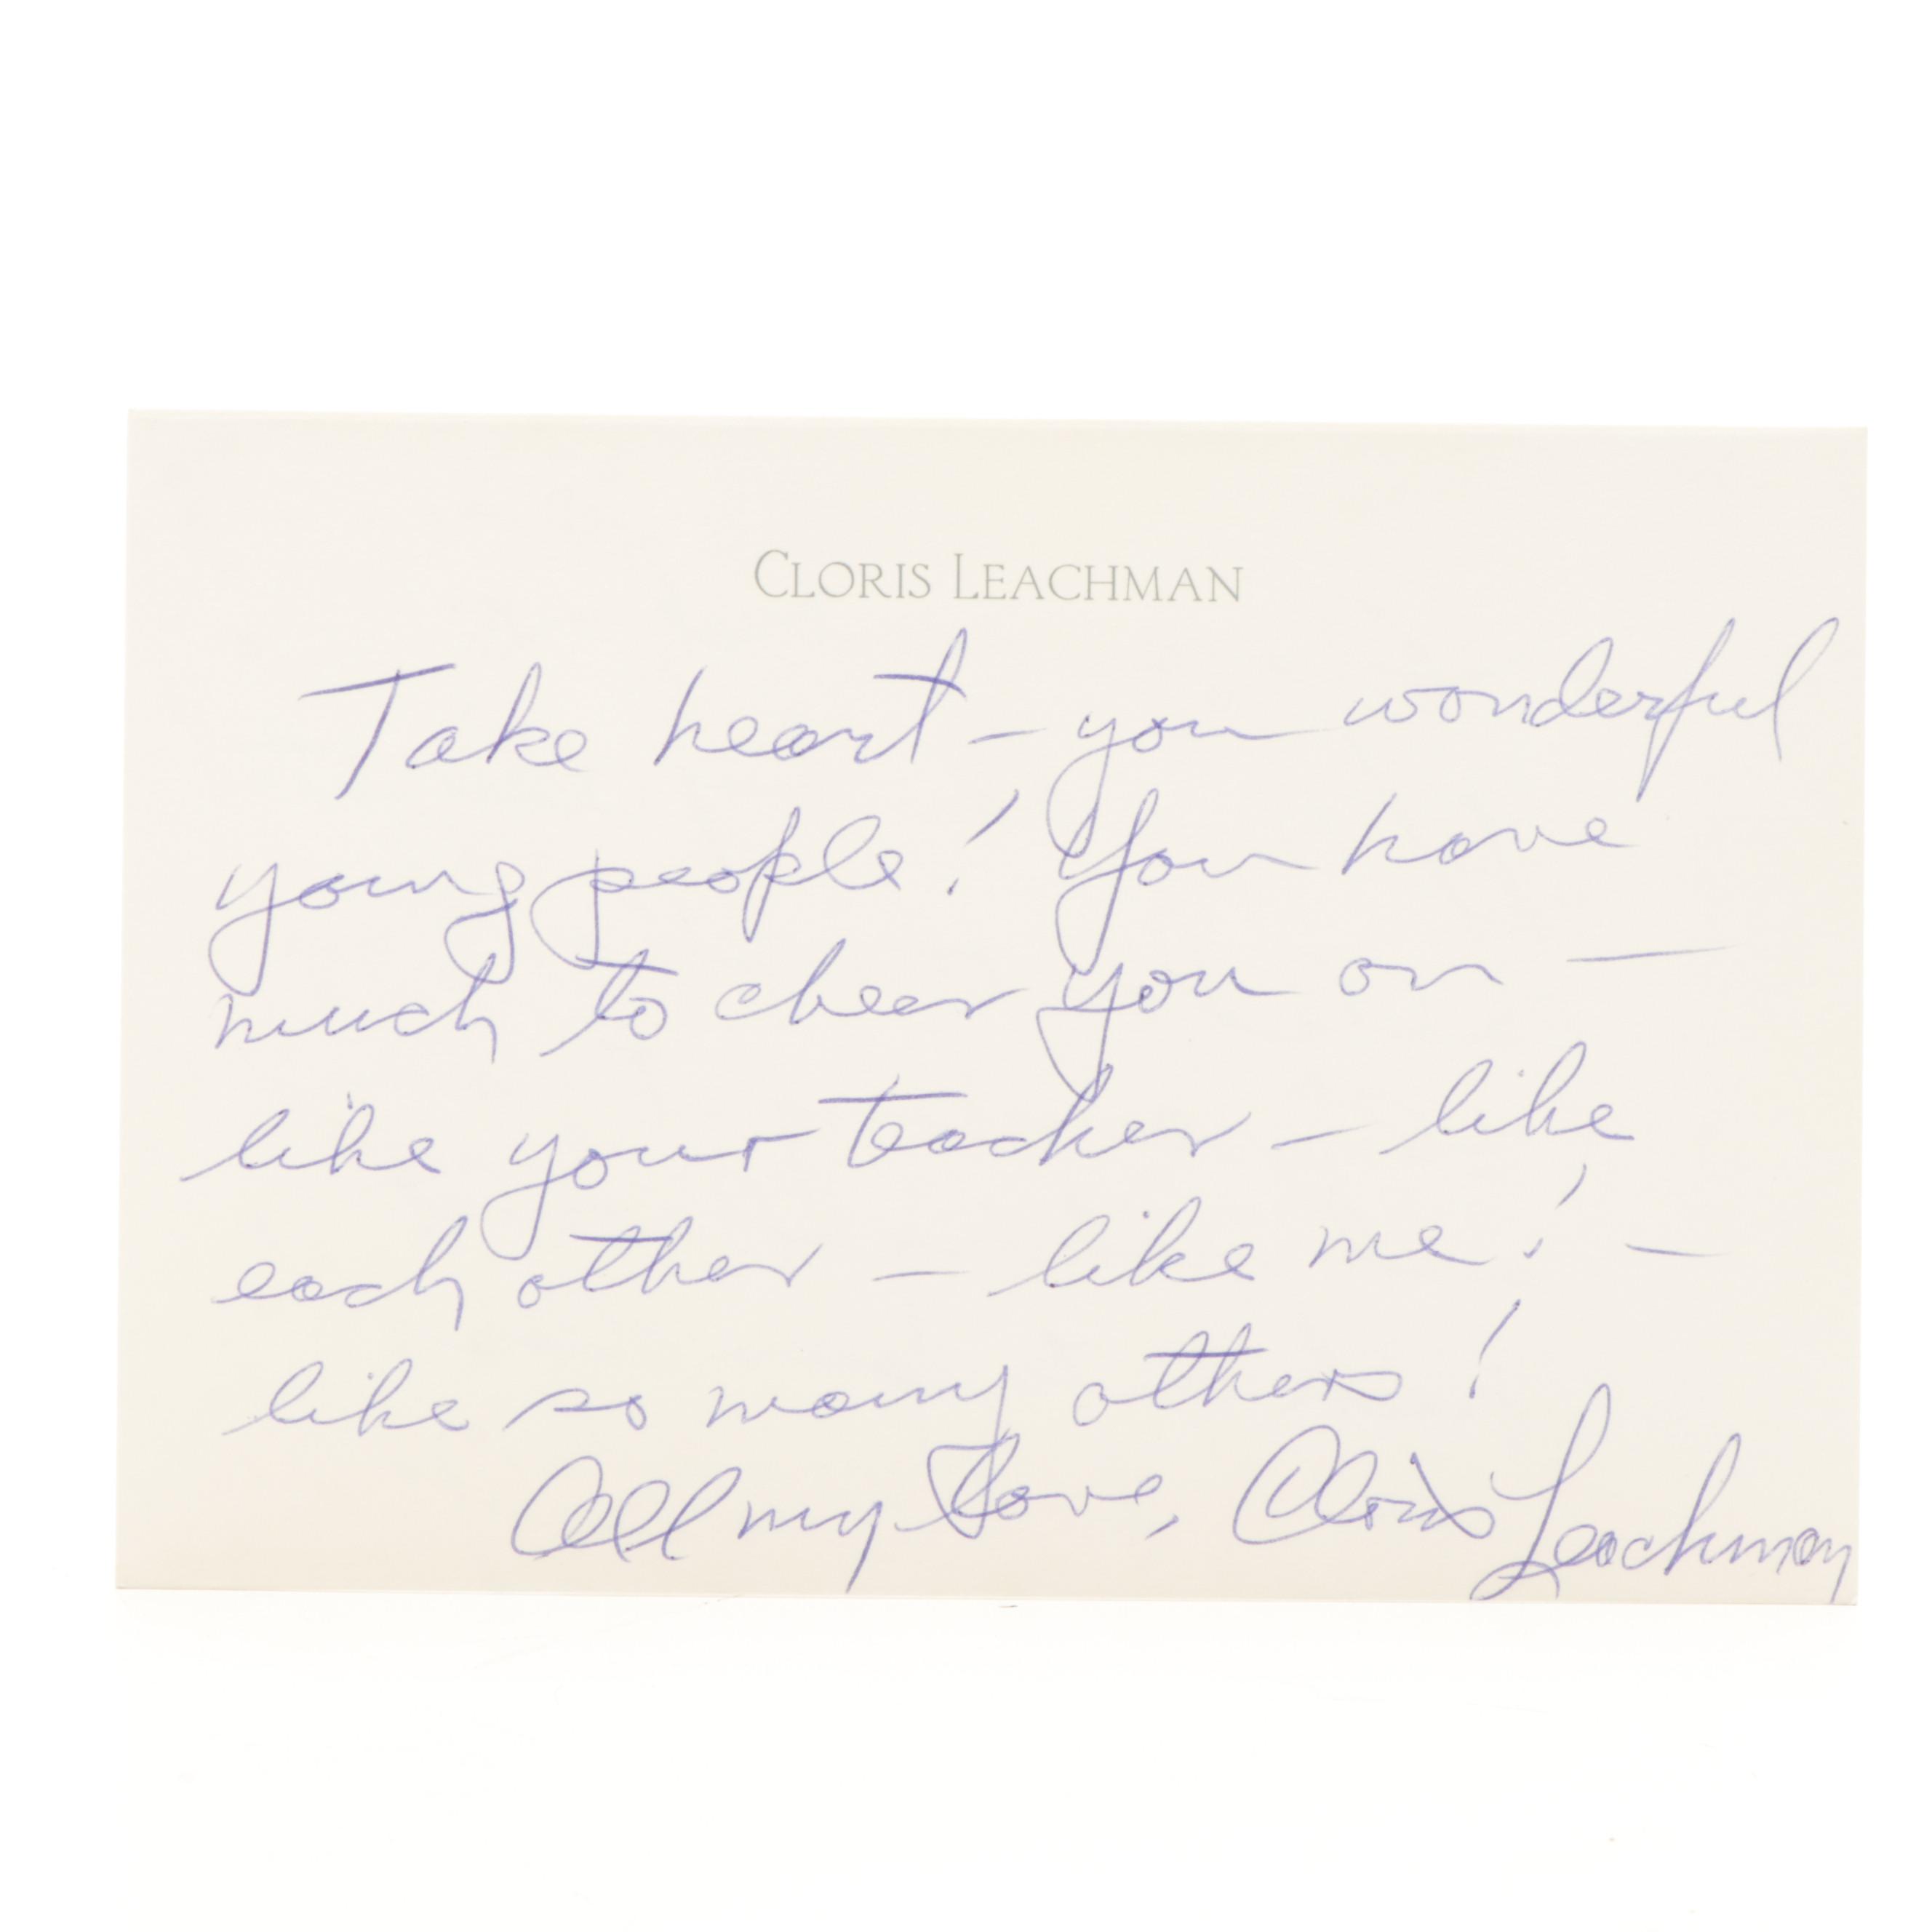 CLORIS LEACHMAN
Take heart - you wonderful
young people! You have
much to cheer you on -
like your teacher - like
each other - like me! -
like so many others!
All my Love, Cloris Leachman